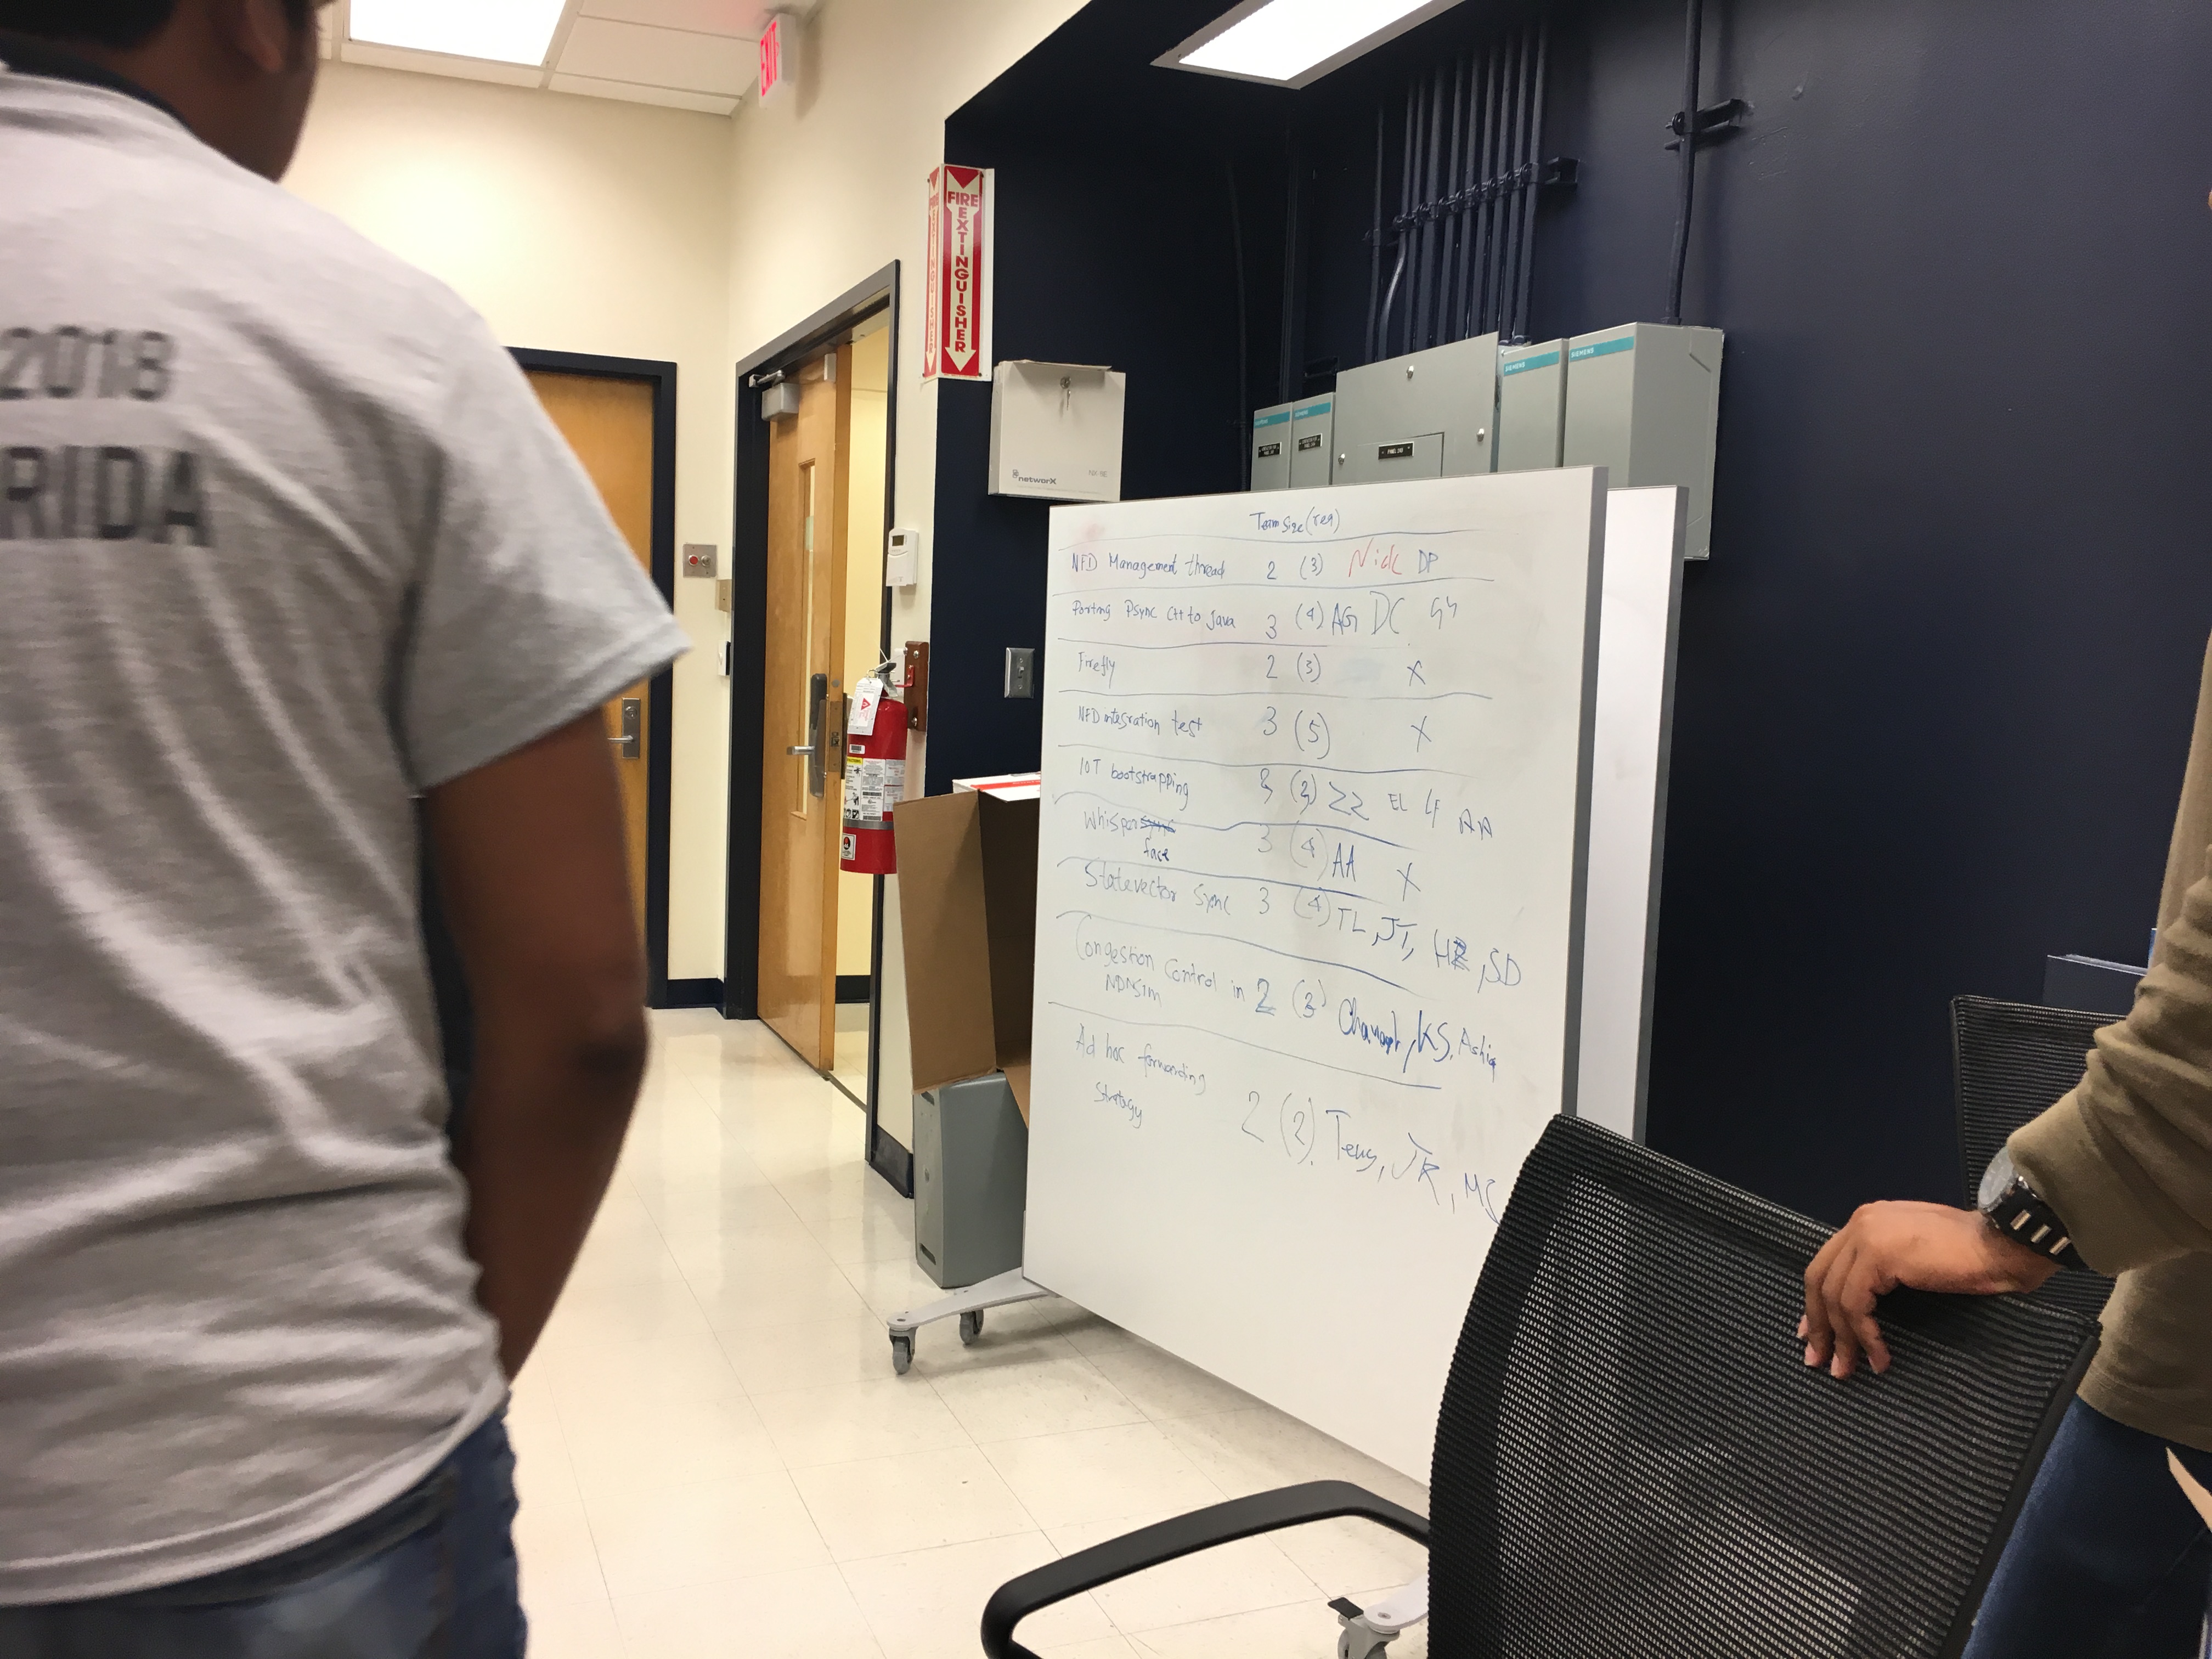 2018
RIDA
EXIT
FIRE EXTINGUISHER
FIRE EXTINGUISHER
networX
SIEMENS
SIEMENS
PANEL
Team Size (req)
NFD Management thread 2 (3) Nick DP
Porting Psync C++ to Java 3 (4) AG DC
Firefly 2 (3) X
NFD integration test 3 (5) X
IOT bootstrapping ZZ EL LF AA
Whisper
face 3 (4) AA X
Statevector Sync 3 (4) TL, JT, SD
Congestion Control in 2 (3) KS, Ashiq
NDNSIM
Ad hoc forwarding
Strategy 2 (2) Teng, JR, MS